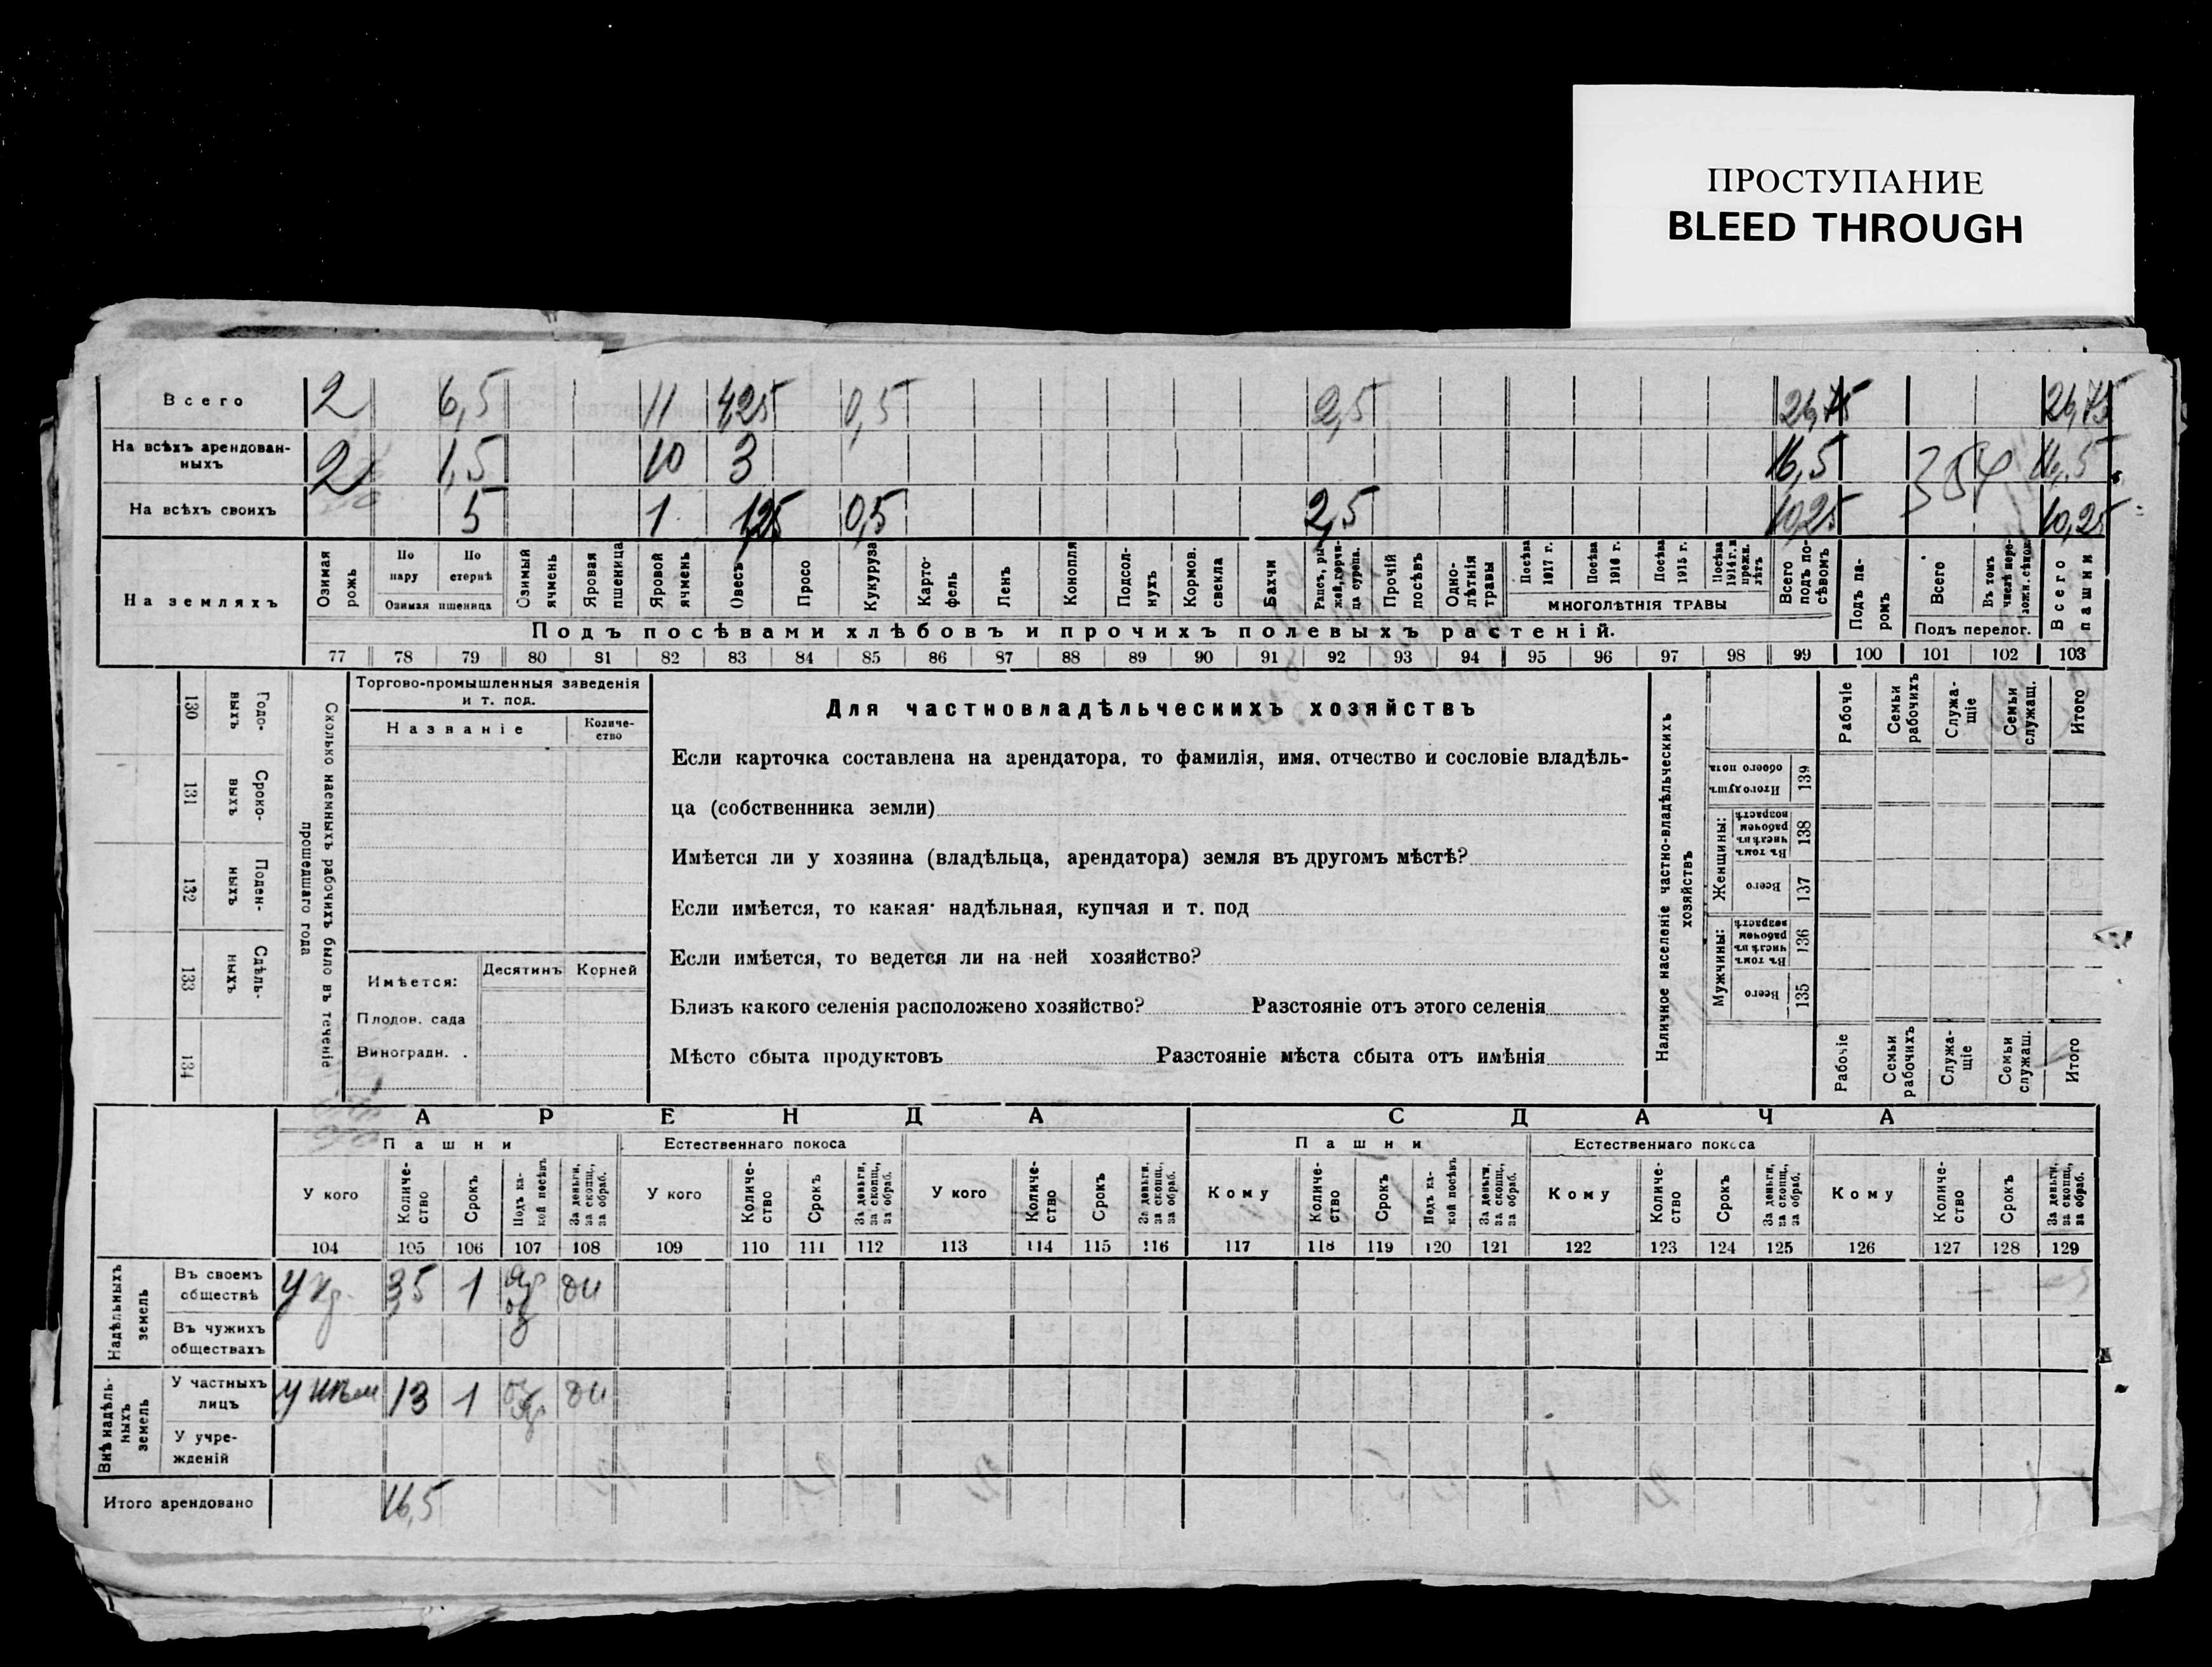 ПРОСТУПАНИЕ
BLEED THROUGH
Всего 2 6,5 11 4,25 0,5 2,5 26,75 26,75
На всѣхъ арендован-
ныхъ 2 1,5 10 3 16,5 354 16,5
На всѣхъ своихъ 5 1 1,25 0,5 2,5 10,25 10,25
На земляхъ
Озимая рожь
По пару
По стернѣ
Озимая пшеница
Озимый ячмень
Яровая пшеница
Яровой ячмень
Овесъ
Просо
Кукуруза
Карто-
фель
Ленъ
Конопля
Подсол-
нухъ
Кормов. свекла
Бахчи
Рапсъ, ры-
жей, горчи-
ца сурепа.
Прочій посѣвъ
Одно-
лѣтнія травы
Посѣва 1917 г.
Посѣва 1916 г.
Посѣва 1915 г.
Посѣва 1914 г. и прежн. лѣтъ
МНОГОЛѢТНІЯ ТРАВЫ
Всего подъ по-
сѣвомъ
Подъ па-
ромъ
Всего
Въ томъ числѣ пере-
ложн. сѣнок.
Подъ перелог.
Всего пашни
Подъ посѣвами хлѣбовъ и прочихъ полевыхъ растеній.
77 78 79 80 81 82 83 84 85 86 87 88 89 90 91 92 93 94 95 96 97 98 99 100 101 102 103
130 Годо-
выхъ
131 Сроко-
выхъ
132 Поден-
ныхъ
133 Сдѣль-
ныхъ
134
Сколько наемныхъ рабочихъ было въ теченіе
прошедшаго года
Торгово-промышленныя заведенія
и т. под.
Названіе
Количе-
ство
Имѣется:
Десятинъ Корней
Плодов. сада
Виноградн. .
Для частновладѣльческихъ хозяйствъ
Если карточка составлена на арендатора, то фамилія, имя, отчество и сословіе владѣль-
ца (собственника земли)
Имѣется ли у хозяина (владѣльца, арендатора) земля въ другомъ мѣстѣ?
Если имѣется, то какая: надѣльная, купчая и т. под
Если имѣется, то ведется ли на ней хозяйство?
Близъ какого селенія расположено хозяйство? Разстояніе отъ этого селенія
Мѣсто сбыта продуктовъ Разстояніе мѣста сбыта отъ имѣнія
Наличное населеніе частно-владѣльческихъ
хозяйствъ
Рабочіе
Семьи рабочихъ
Служа-
щіе
Семьи служащ.
Итого
Итого душъ обоего пола 139
Женщины:
Въ томъ числѣ въ рабочем возрастѣ 138
Всего 137
Мужчины:
Въ томъ числѣ въ рабочем возрастѣ 136
Всего 135
Рабочіе
Семьи рабочихъ
Служа-
щіе
Семьи служащ.
Итого
АРЕНДА
СДАЧА
Пашни
Естественнаго покоса
Пашни
Естественнаго покоса
У кого
Количе-
ство
Срокъ
Подъ ка-
кой посѣвъ
За деньги, за скопщ., за обраб.
У кого
Количе-
ство
Срокъ
За деньги, за скопщ., за обраб.
У кого
Количе-
ство
Срокъ
За деньги, за скопщ., за обраб.
Кому
Количе-
ство
Срокъ
Подъ ка-
кой посѣвъ
За деньги, за скопщ., за обраб.
Кому
Количе-
ство
Срокъ
За деньги, за скопщ., за обраб.
Кому
Количе-
ство
Срокъ
За деньги, за скопщ., за обраб.
104 105 106 107 108 109 110 111 112 113 114 115 116 117 118 119 120 121 122 123 124 125 126 127 128 129
Надѣльныхъ земель
Въ своемъ
обществѣ У кр. 3,5 1 яр оз ди
Въ чужихъ
обществахъ
Внѣ надѣль-
ныхъ земель
У частныхъ
лицъ 13 1 оз яр ди
У учре-
жденій
Итого арендовано 16,5